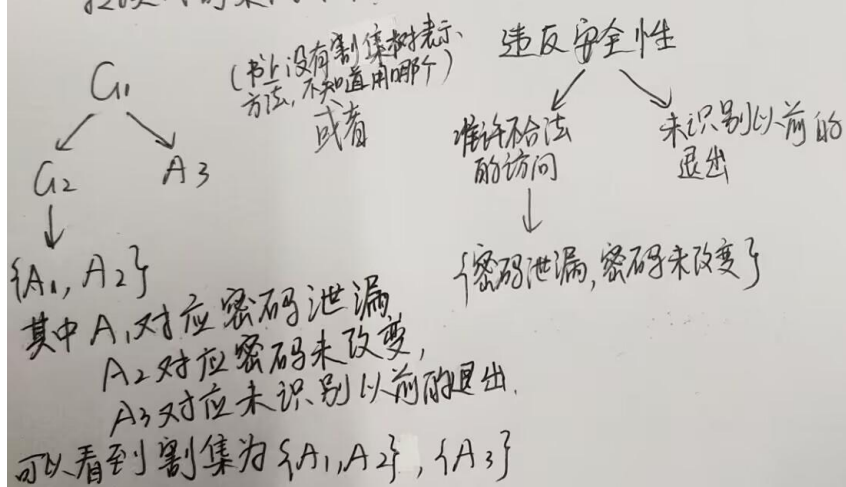 G₁
(书上没有割集树表示
方法,不知道用哪个)
或者
违反安全性
G₂
A3
准许不合法
的访问
未识别以前的
退出
{A₁, A₂}
{密码泄漏,密码未改变}
其中A₁对应密码泄漏,
A₂对应密码未改变,
A3对应未识别以前的退出.
可以看到割集为{A₁,A₂},{A₃}